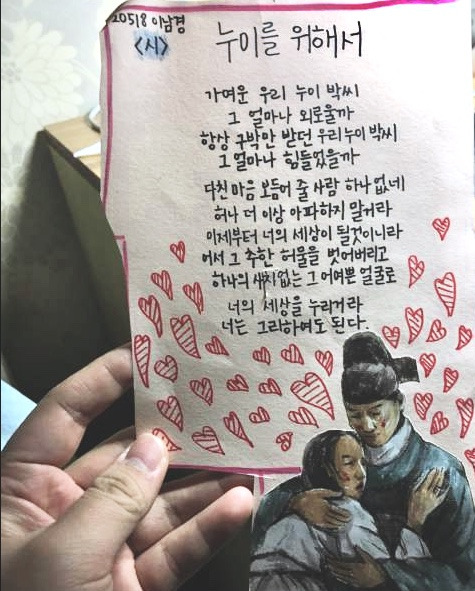 20518 이남경
<시>
누이를 위해서
가여운 우리 누이 박씨
그 얼마나 외로울까
항상 구박만 받던 우리누이 박씨
그얼마나 힘들었을까
다친 마음 보듬어 줄 사람 하나 없네
허나 더 이상 아파하지 말거라
이제부터 너의 세상이 될것이니라
어서 그 추한 허물을 벗어버리고
하나의 없는 그 어여쁜 얼굴로
너의 세상을 누리거라
너는 그리하여도 된다.